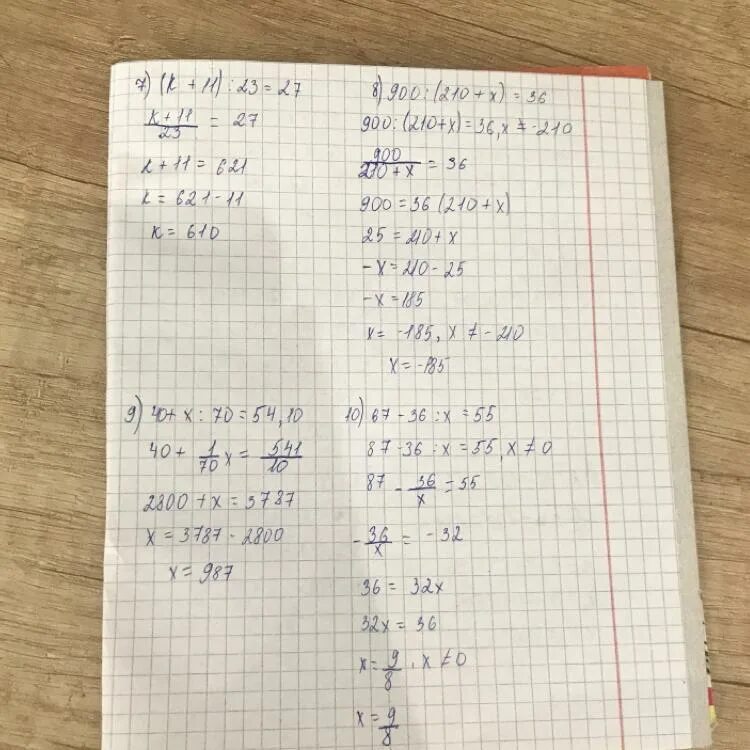 7) (k + 11) : 23 = 27
k + 11 / 23 = 27
k + 11 = 621
k = 621 - 11
k = 610
8) 900 : (210 + x) = 36
900 : (210 + x) = 36, x ≠ -210
900 / 210 + x = 36
900 = 36 (210 + x)
25 = 210 + x
-x = 210 - 25
-x = 185
x = -185, x ≠ -210
x = -185
9) 40 + x : 70 = 54,10
40 + 1/70 x = 541/10
2800 + x = 3787
x = 3787 - 2800
x = 987
10) 67 - 36 : x = 55
87 - 36 : x = 55, x ≠ 0
87 - 36/x = 55
-36/x = -32
36 = 32x
32x = 36
x = 9/8, x ≠ 0
x = 9/8